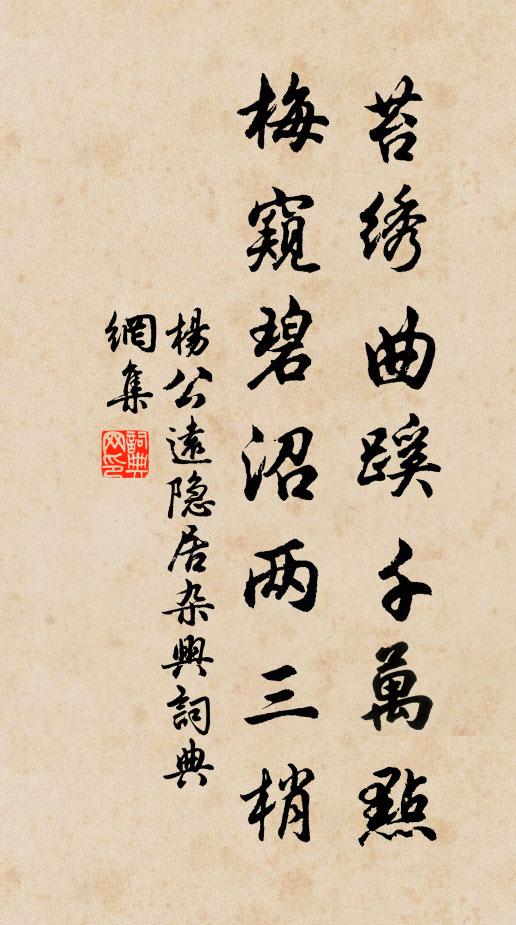 苔绣曲蹊千萬點
梅窺碧沼两三梢
楊公遠隐居杂興詞典
網集
詞典网印